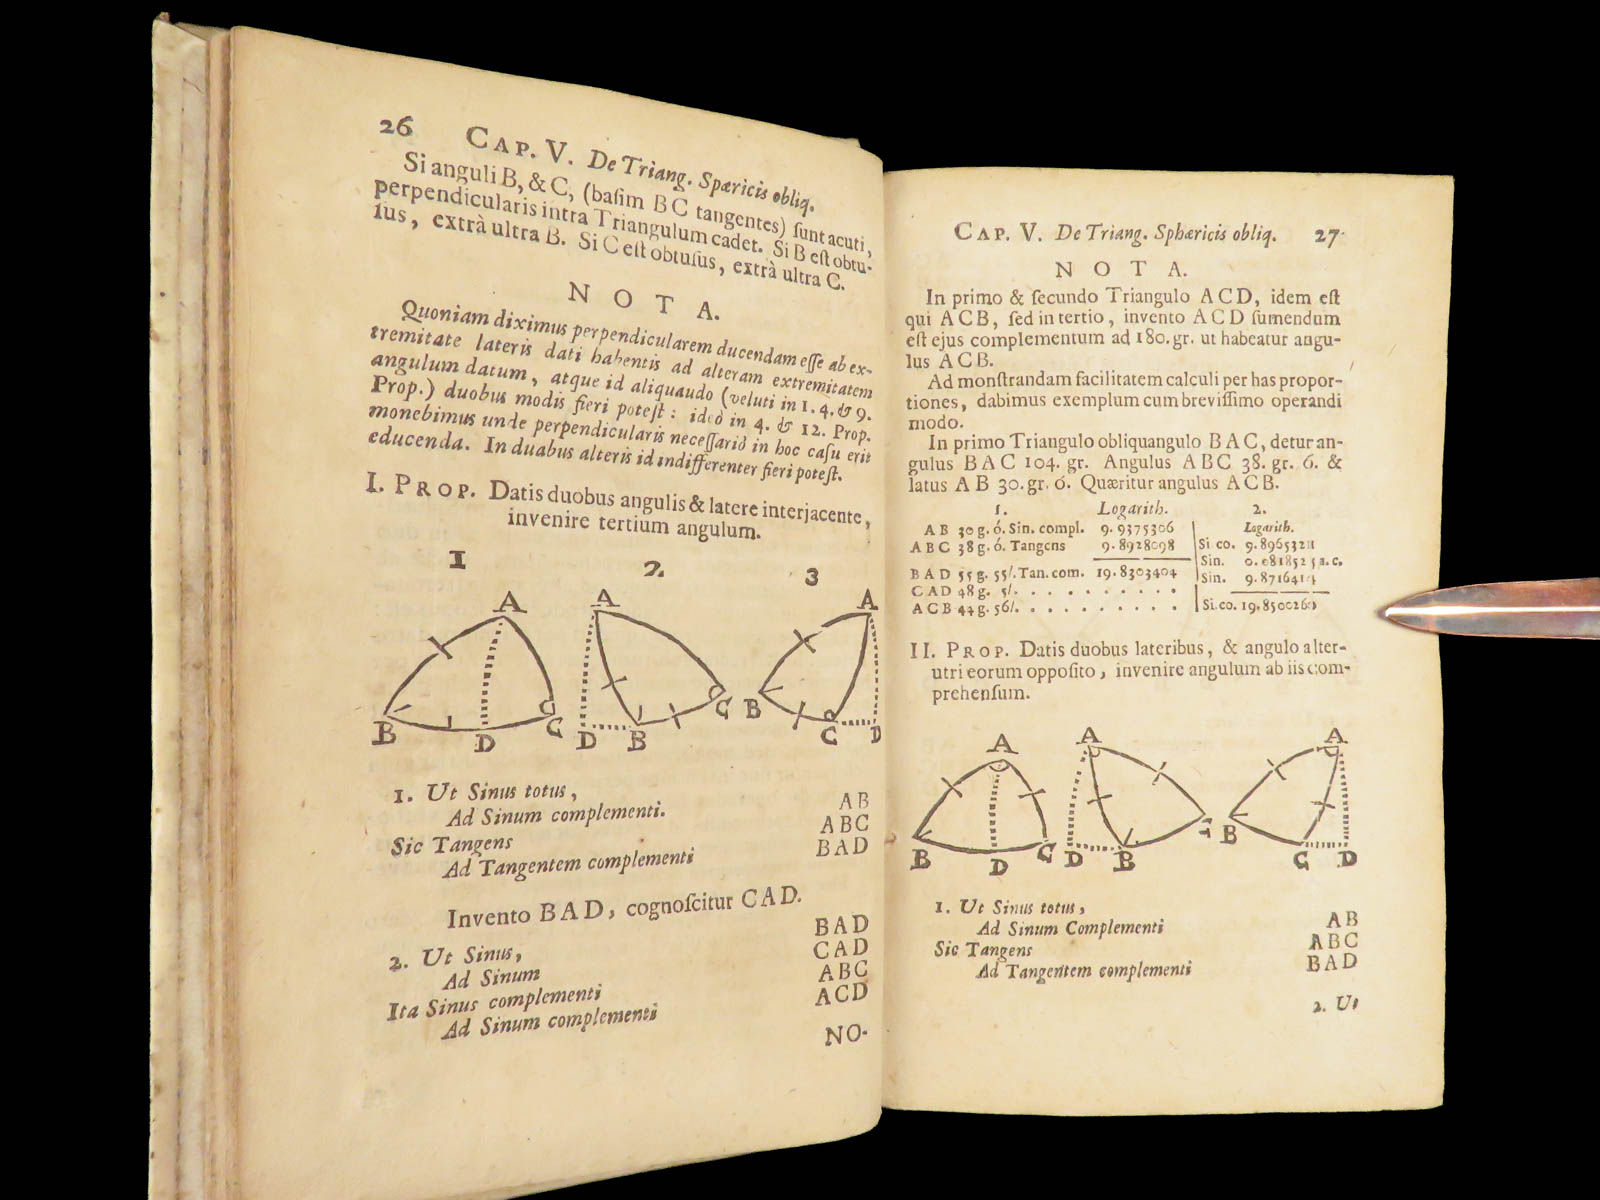 26 CAP. V. De Triang. Spæricis obliq.
Si anguli B, & C, (baſim BC tangentes) ſunt acuti,
perpendicularis intra Triangulum cadet. Si B eſt obtu-
ſus, extrà ultra B. Si C eſt obtuſus, extrà ultra C.
NOTA.
Quoniam diximus perpendicularem ducendam eſſe ab ex-
tremitate lateris dati habentis ad alteram extremitatem
angulum datum, atque id aliquaudo (veluti in 1. 4. & 9.
Prop.) duobus modis fieri poteſt: ideò in 4. & 12. Prop.
monebimus unde perpendicularis neceſſariò in hoc caſu erit
educenda. In duabus alteris id indifferenter fieri poteſt.
I. PROP. Datis duobus angulis & latere interjacente,
invenire tertium angulum.
1 2. 3
A A A
B D C D B C B C D
1. Ut Sinus totus,
Ad Sinum complementi. AB
Sic Tangens ABC
Ad Tangentem complementi BAD
Invento BAD, cognoſcitur CAD.
2. Ut Sinus, BAD
Ad Sinum CAD
Ita Sinus complementi ABC
Ad Sinum complementi ACD
NO-
CAP. V. De Triang. Sphæricis obliq. 27
NOTA.
In primo & ſecundo Triangulo ACD, idem eſt
qui ACB, ſed in tertio, invento ACD ſumendum
eſt ejus complementum ad 180. gr. ut habeatur angu-
lus ACB.
Ad monſtrandam facilitatem calculi per has propor-
tiones, dabimus exemplum cum breviſſimo operandi
modo.
In primo Triangulo obliquangulo BAC, detur an-
gulus BAC 104. gr. Angulus ABC 38. gr. 6. &
latus AB 30. gr. ó. Quæritur angulus ACB.
1. Logarith. 2.
Logarith.
AB 30 g. ó. Sin. compl. 9. 9375306
Si co. 9. 8965321
ABC 38 g. ó. Tangens 9. 8928098
Sin. a. c.
BAD 55 g. 55/. Tan. com. 19. 8303404
Sin. 9. 8716414
CAD 48 g. 5/. . . . . . . . . . .
ACB 44 g. 56/. . . . . . . . . . .
Si. co.
II. PROP. Datis duobus lateribus, & angulo alter-
utri eorum oppoſito, invenire angulum ab iis com-
prehenſum.
A A A
B D C D B B C D
1. Ut Sinus totus,
Ad Sinum Complementi AB
Sic Tangens ABC
Ad Tangentem complementi BAD
2. Ut